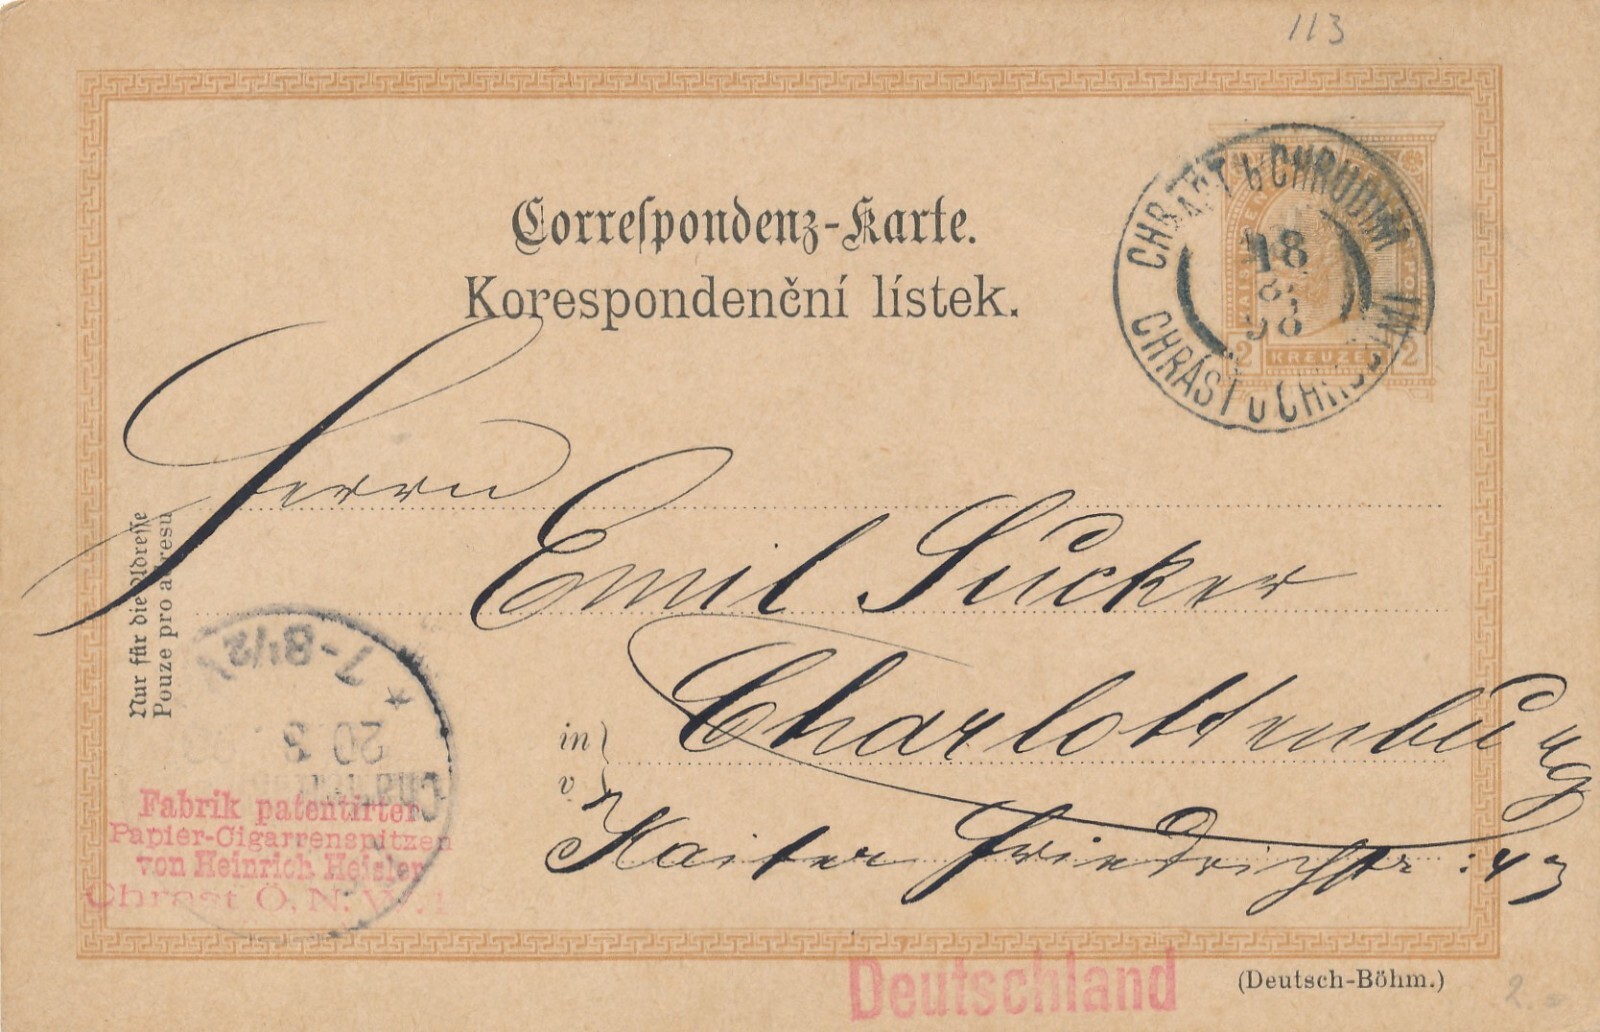 113
Correſpondenz-Karte.
Korespondenční lístek.
CHRAST b CHRUDIM
18
8
98
CHRÁST u CHRUDIMI
2 KREUZER 2
Herrn
Emil Sucker
in
v
Charlottenburg
Kaiser Friedrichstr: 43
Nur für die Adreſſe
Pouze pro adresu
7-8½
20 3
Fabrik patentirter
Papier-Cigarrenspitzen
von Heinrich Heisler
Chrast Ö. N. W.
Deutschland
(Deutsch-Böhm.)
2.-